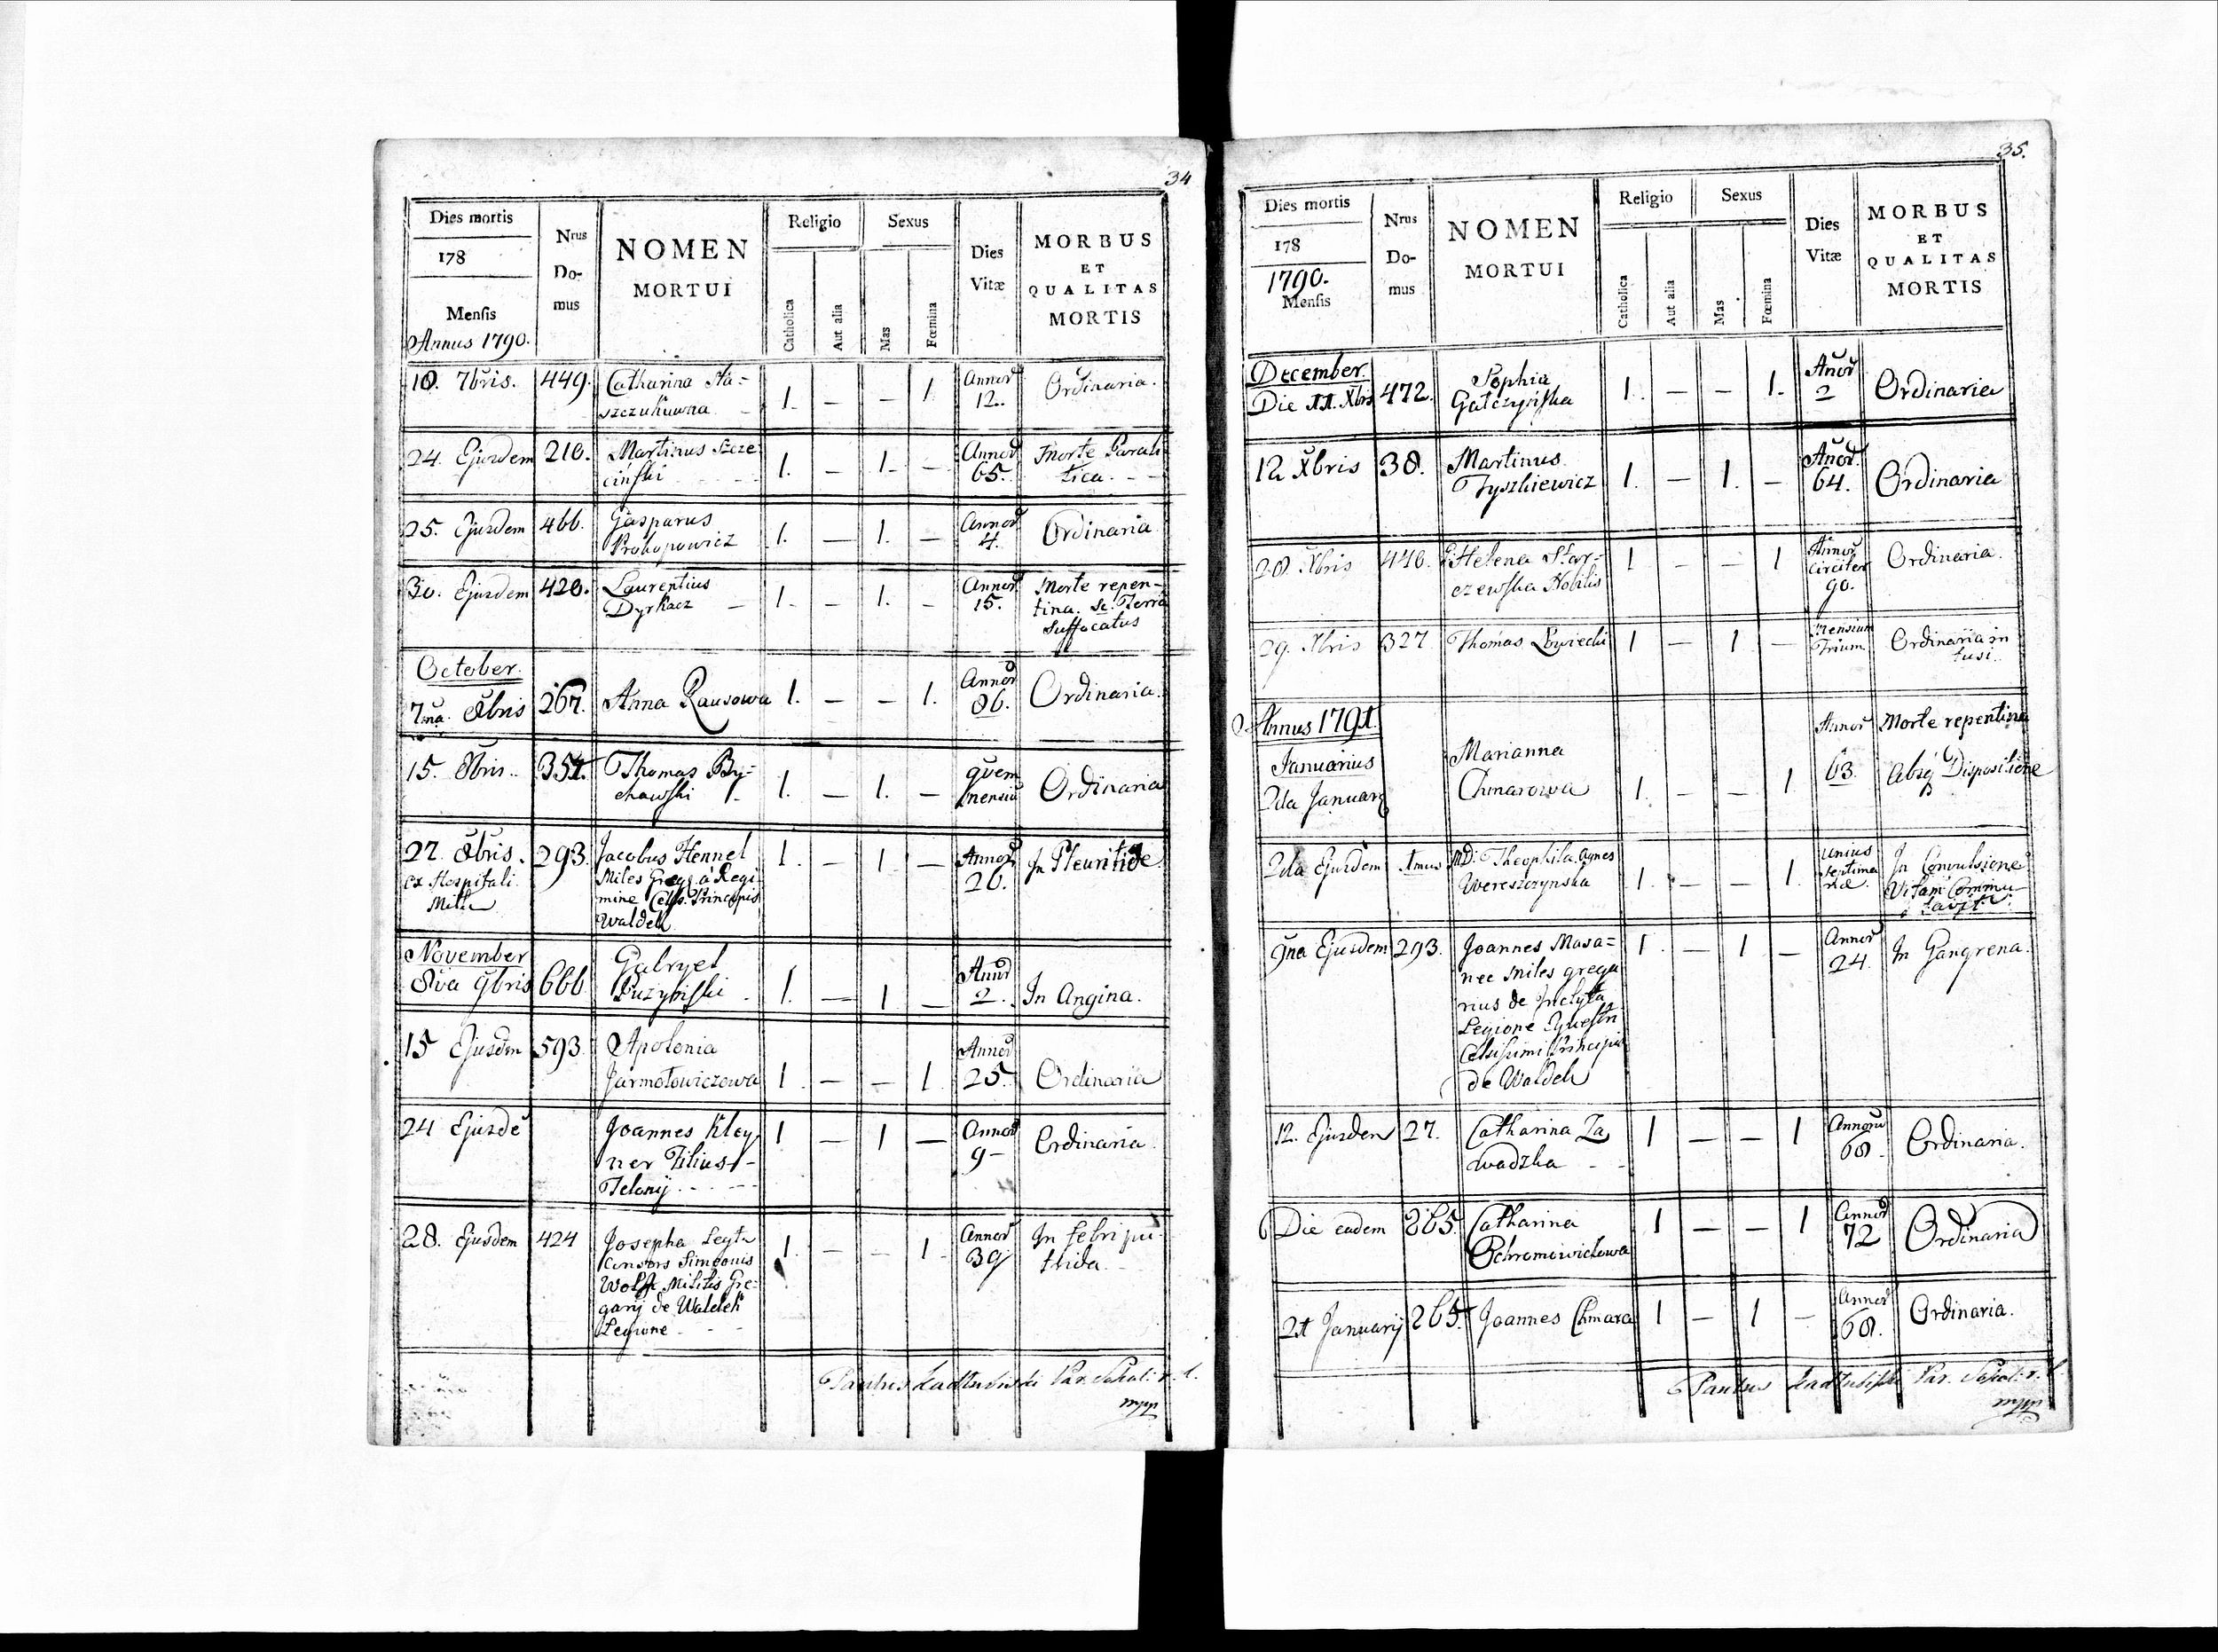 34
Dies mortis
178
Mensis
Annus 1790.
Nrus
Do-
mus
NOMEN
MORTUI
Religio
Catholica
Aut alia
Sexus
Mas
Fœmina
Dies
Vitæ
MORBUS
ET
QUALITAS
MORTIS
18. 7bris. 449. Catharina Sta= 1. — — 1 Annor 12. Ordinaria.
szczukuwna
24. Ejusdem 210. Martinus Szcze 1. — 1. — Annor 65. Morte Parali
cinski tica.
25. Ejusdem 466. Gasparus 1. — 1. — Annor 4. Ordinaria
Prokopowicz
30. Ejusdem 420. Laurentius 1. — 1. — Annor 15. Morte repen-
Dyrkacz tina. Sc. Terra
Suffocatus
October.
7ma 8bris 267. Anna Rausowa 1. — — 1. Annor 86. Ordinaria.
15. 8bris. 351. Thomas By- 1. — 1. — mensiu Ordinaria
chawski
27. 8bris. 293. Jacobus Hennel 1. — 1 — Annor 20. In Pleuritide
ex Hospitali Miles Greg. a Regi
mine Cels. Principis
Waldek
November
8va 9bris 666. Gabryel 1. — 1. — Annor 2. In Angina.
15 Ejusdm 593. Apolonia
Jarmołowiczowa 1. — — 1. Annor 25. Ordinaria
24 Ejusdē Joannes Kley 1 — 1 — Annor 9 — Ordinaria
ner Filius
Telonij
28. Ejusdem 424 Josepha 1. — — 1. Annor 39 In febri pu-
Consors Simeonis trida.
Wolff Militis Gre-
garij de Waldek
Legione
Paulus Kadłubiski Par.
mpp
35.
Dies mortis
178
1790.
Mensis
Nrus
Do-
mus
NOMEN
MORTUI
Religio
Catholica
Aut alia
Sexus
Mas
Fœmina
Dies
Vitæ
MORBUS
ET
QUALITAS
MORTIS
December.
Die 11. Xbris 472. Sophia 1. — — 1. Anor 2 Ordinaria
Gałczyńska
12 Xbris 38. Martinus 1. — 1. — Anor. 64. Ordinaria
Tyszkiewicz
28 Xbris 440. Helena Star- 1 — — 1 Annor circiter 90. Ordinaria.
czewska Nobilis
29. Xbris 327 Thomas Łowiecki 1 — 1 — Mensium Trium Ordinaria in
tusi.
Annus 1791.
Januarius
2da Januarij Marianna 1. — — 1 Annor 63. Morte repentina
Chmarowa absq Dispositione
2da Ejusdem 1mus MD: Theophila Agnes 1. — — 1. unius septima næ In Convulsione
Wereszczynska Vitam Commu-
tavit.
9na Ejusdem 293. Joannes Masa= 1. — 1 — Annor 24. In Gangrena.
nec Miles grega
rius de Inclyta
Legione
Celsissimi Principis
de Waldek
12. Ejusdem 27. Catharina Za 1 — — 1 Annoru 60. Ordinaria.
wadzka
Die eadem 265. Catharina 1 — — 1 Annor 72 Ordinaria
Ochromowiczowa
21 Januarij 265. Joannes Chmara 1 — 1 — Annor 60. Ordinaria.
Paulus Kadłubiski Par.
mpp